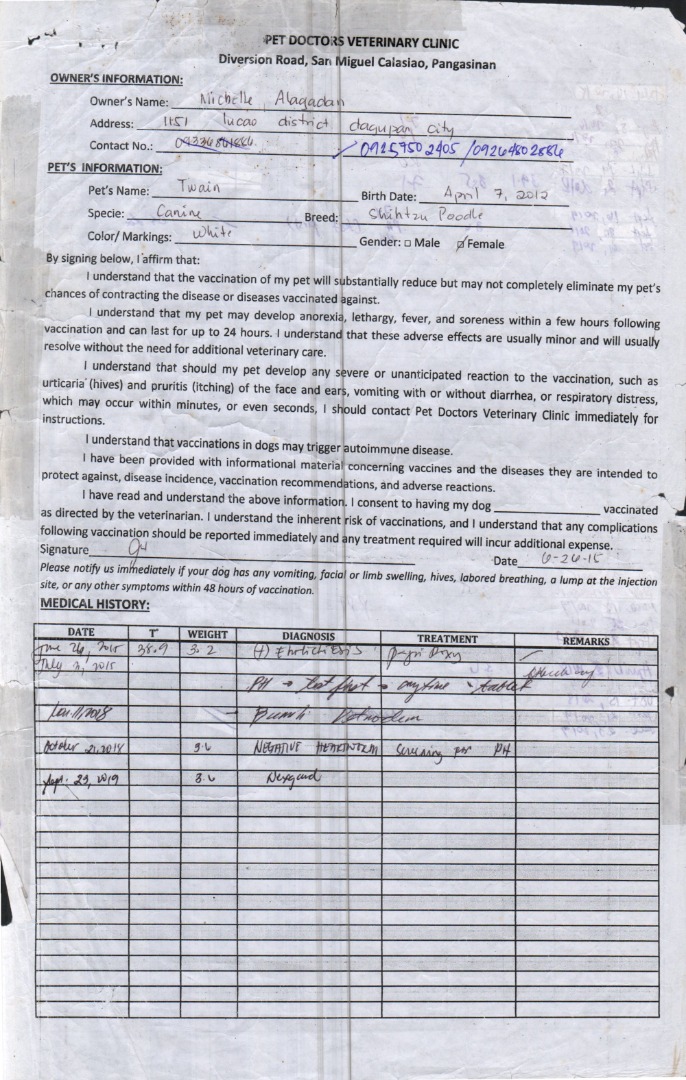 PET DOCTORS VETERINARY CLINIC
Diversion Road, San Miguel Calasiao, Pangasinan
OWNER'S INFORMATION:
Owner's Name: Michelle Alagadan
Address: 1151 lucao district dagupan city
Contact No.: 09257502405 /09264802886
PET'S INFORMATION:
Pet's Name: Twain Birth Date: April 7, 2012
Specie: Canine Breed: Shihtzu Poodle
Color/ Markings: White Gender: □ Male ☑ Female
By signing below, I affirm that:
I understand that the vaccination of my pet will substantially reduce but may not completely eliminate my pet's
chances of contracting the disease or diseases vaccinated against.
I understand that my pet may develop anorexia, lethargy, fever, and soreness within a few hours following
vaccination and can last for up to 24 hours. I understand that these adverse effects are usually minor and will usually
resolve without the need for additional veterinary care.
I understand that should my pet develop any severe or unanticipated reaction to the vaccination, such as
urticaria (hives) and pruritis (itching) of the face and ears, vomiting with or without diarrhea, or respiratory distress,
which may occur within minutes, or even seconds, I should contact Pet Doctors Veterinary Clinic immediately for
instructions.
I understand that vaccinations in dogs may trigger autoimmune disease.
I have been provided with informational material concerning vaccines and the diseases they are intended to
protect against, disease incidence, vaccination recommendations, and adverse reactions.
I have read and understand the above information. I consent to having my dog ____________ vaccinated
as directed by the veterinarian. I understand the inherent risk of vaccinations, and I understand that any complications
following vaccination should be reported immediately and any treatment required will incur additional expense.
Signature Date 6-26-15
Please notify us immediately if your dog has any vomiting, facial or limb swelling, hives, labored breathing, a lump at the injection
site, or any other symptoms within 48 hours of vaccination.
MEDICAL HISTORY:
DATE T° WEIGHT DIAGNOSIS TREATMENT REMARKS
June 26, 2015 38.9 3.2 (+) Ehrlichiosis Doxy
July 3, 2015
PH → test first → anytime tablet
11, 2018
October 21, 2018 3.6 NEGATIVE HEARTWORM Screening per PH
Sept. 23, 2019 3.6 Nexgard